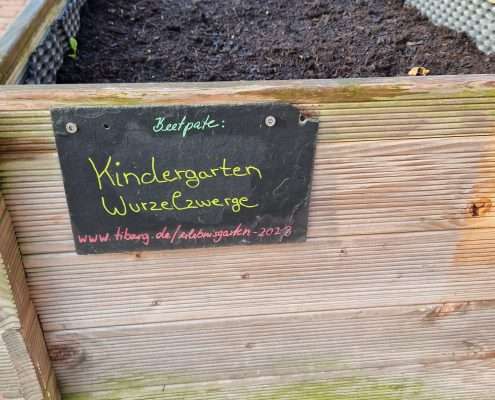 Beetpate:
Kindergarten
Wurzelzwerge
www.tiberg.de/erlebnisgarten-2023